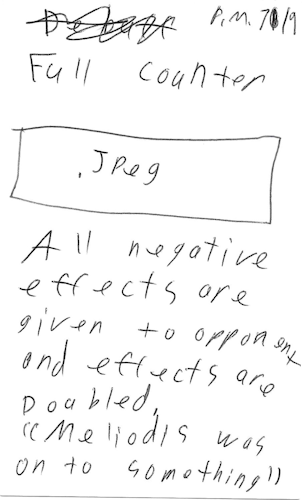 P.M. 7/9
Full Counter
.Jpeg
All negative
effects are
given to opponent
and effects are
Doubled,
"Meliodis was
on to something"